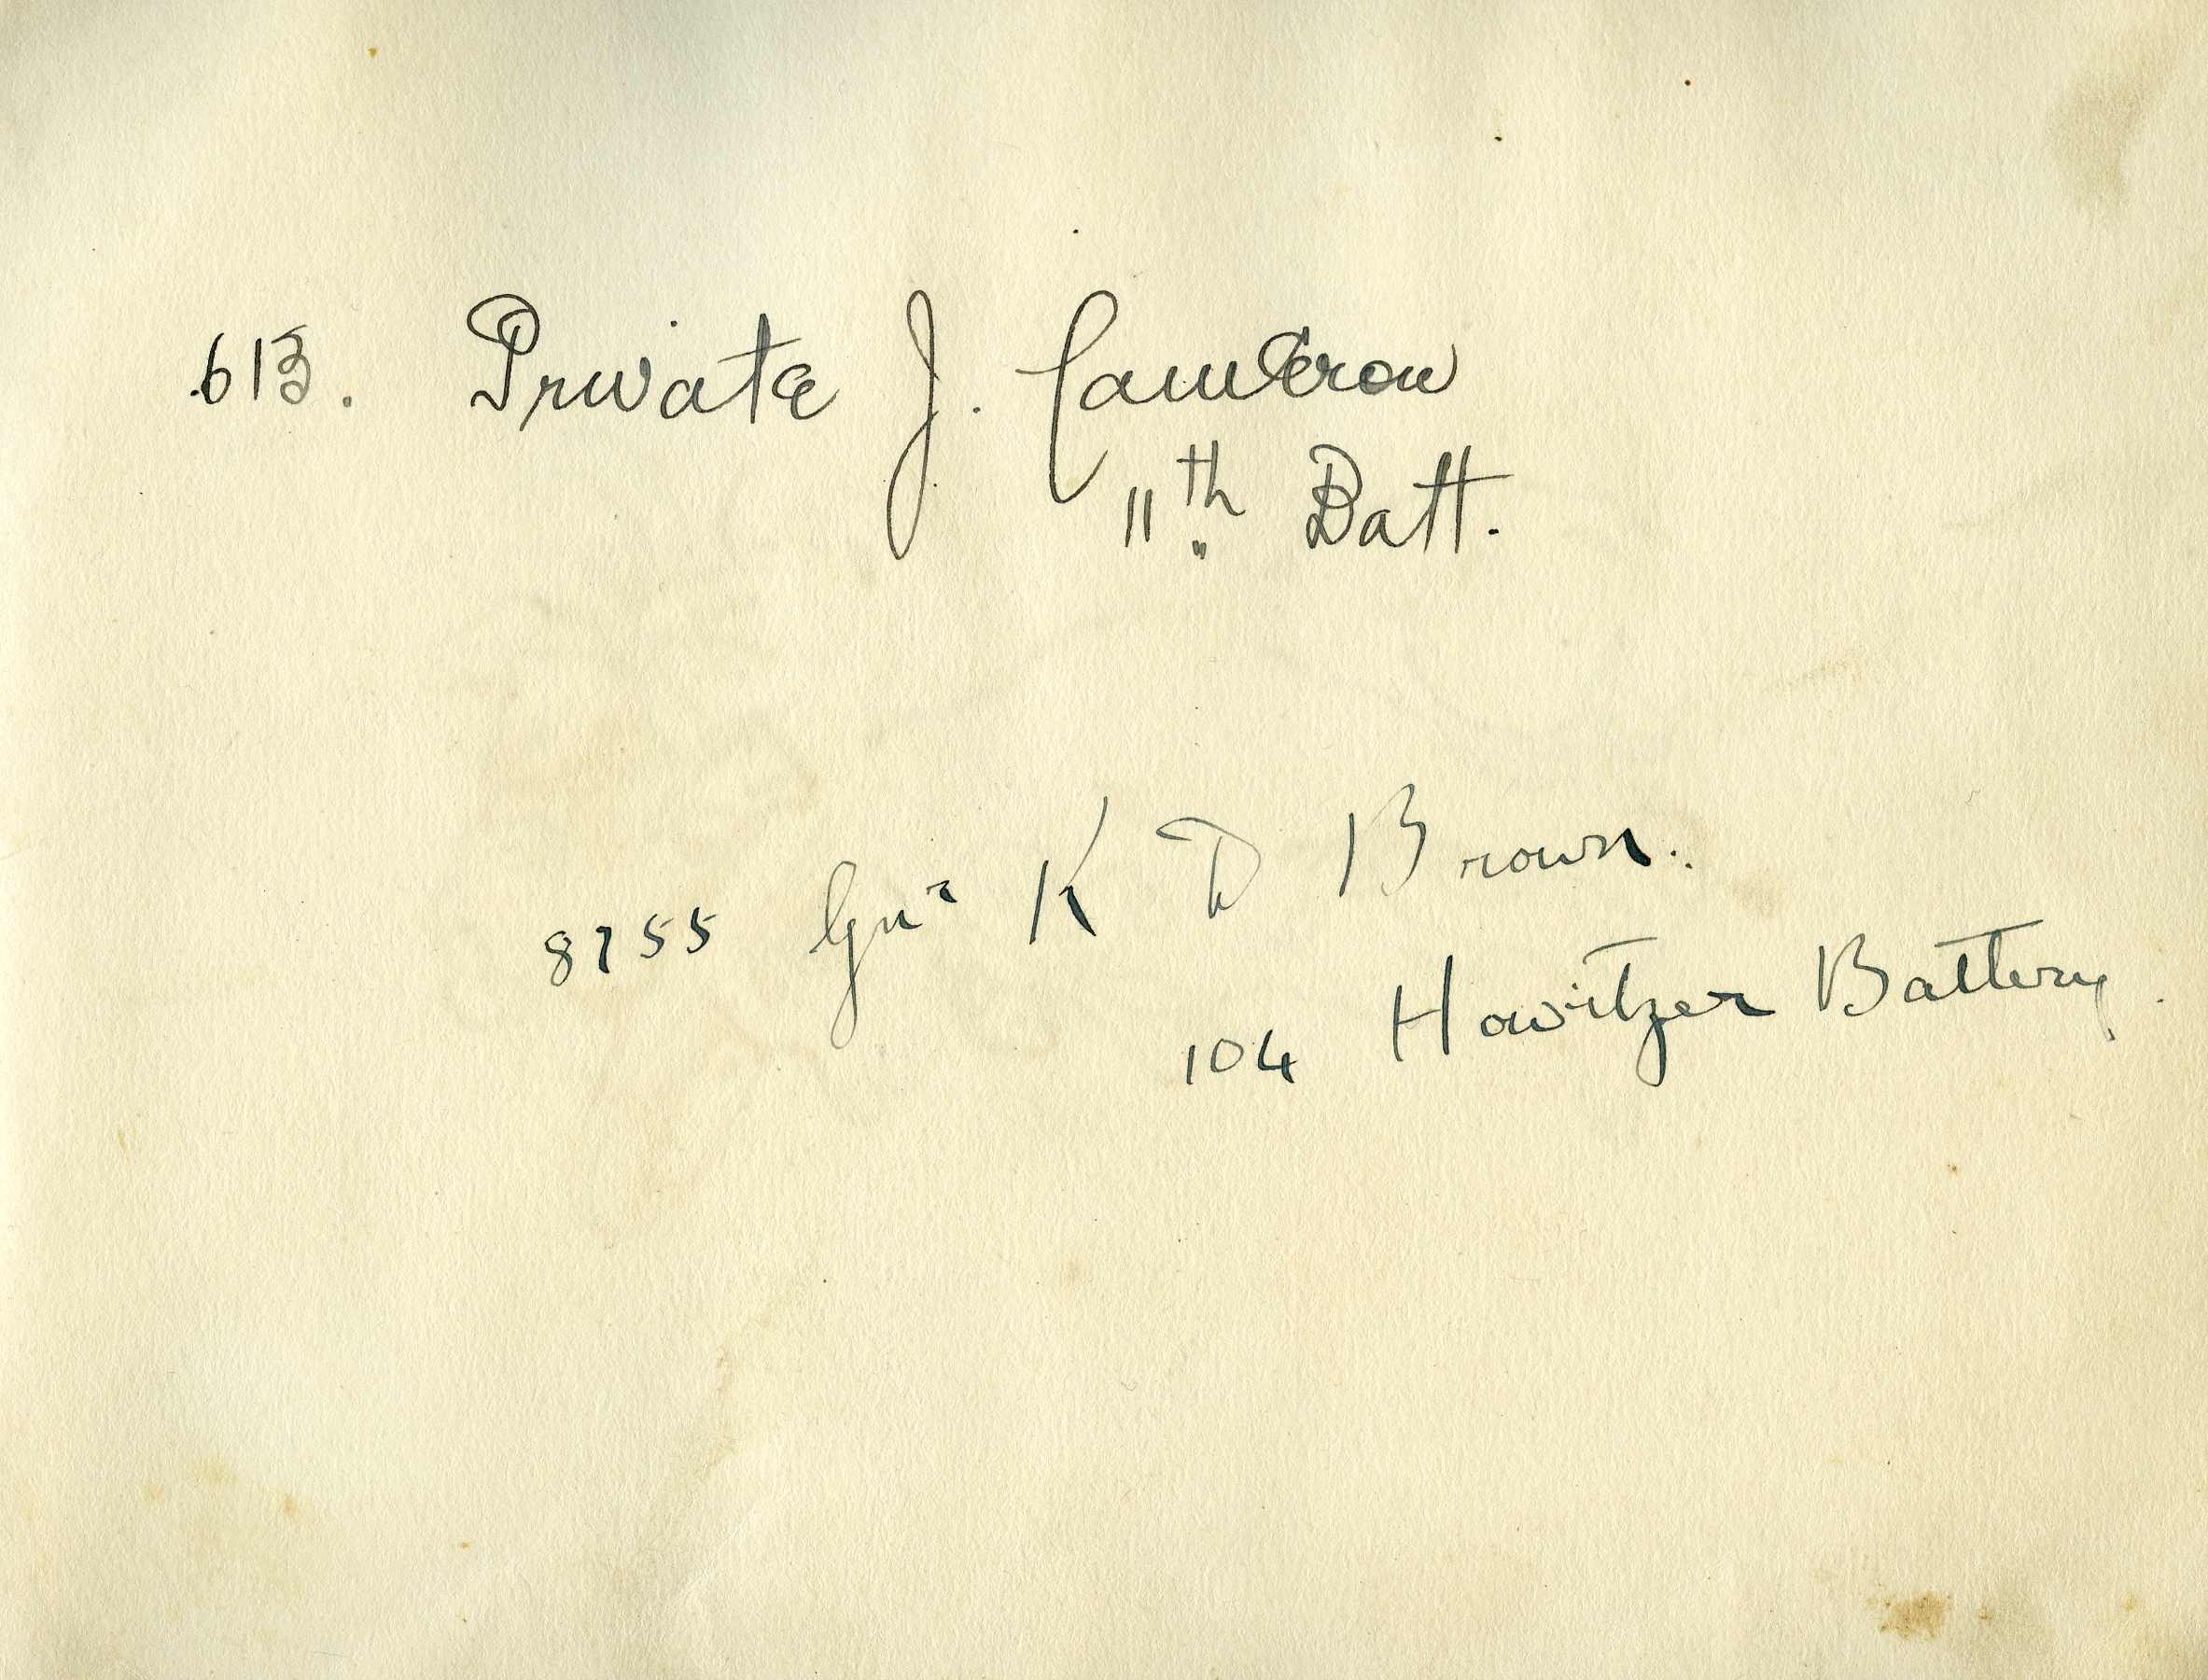 613. Private J. Cameron
11th Batt.
8755 Gnr K D Brown.
104 Howitzer Battery.